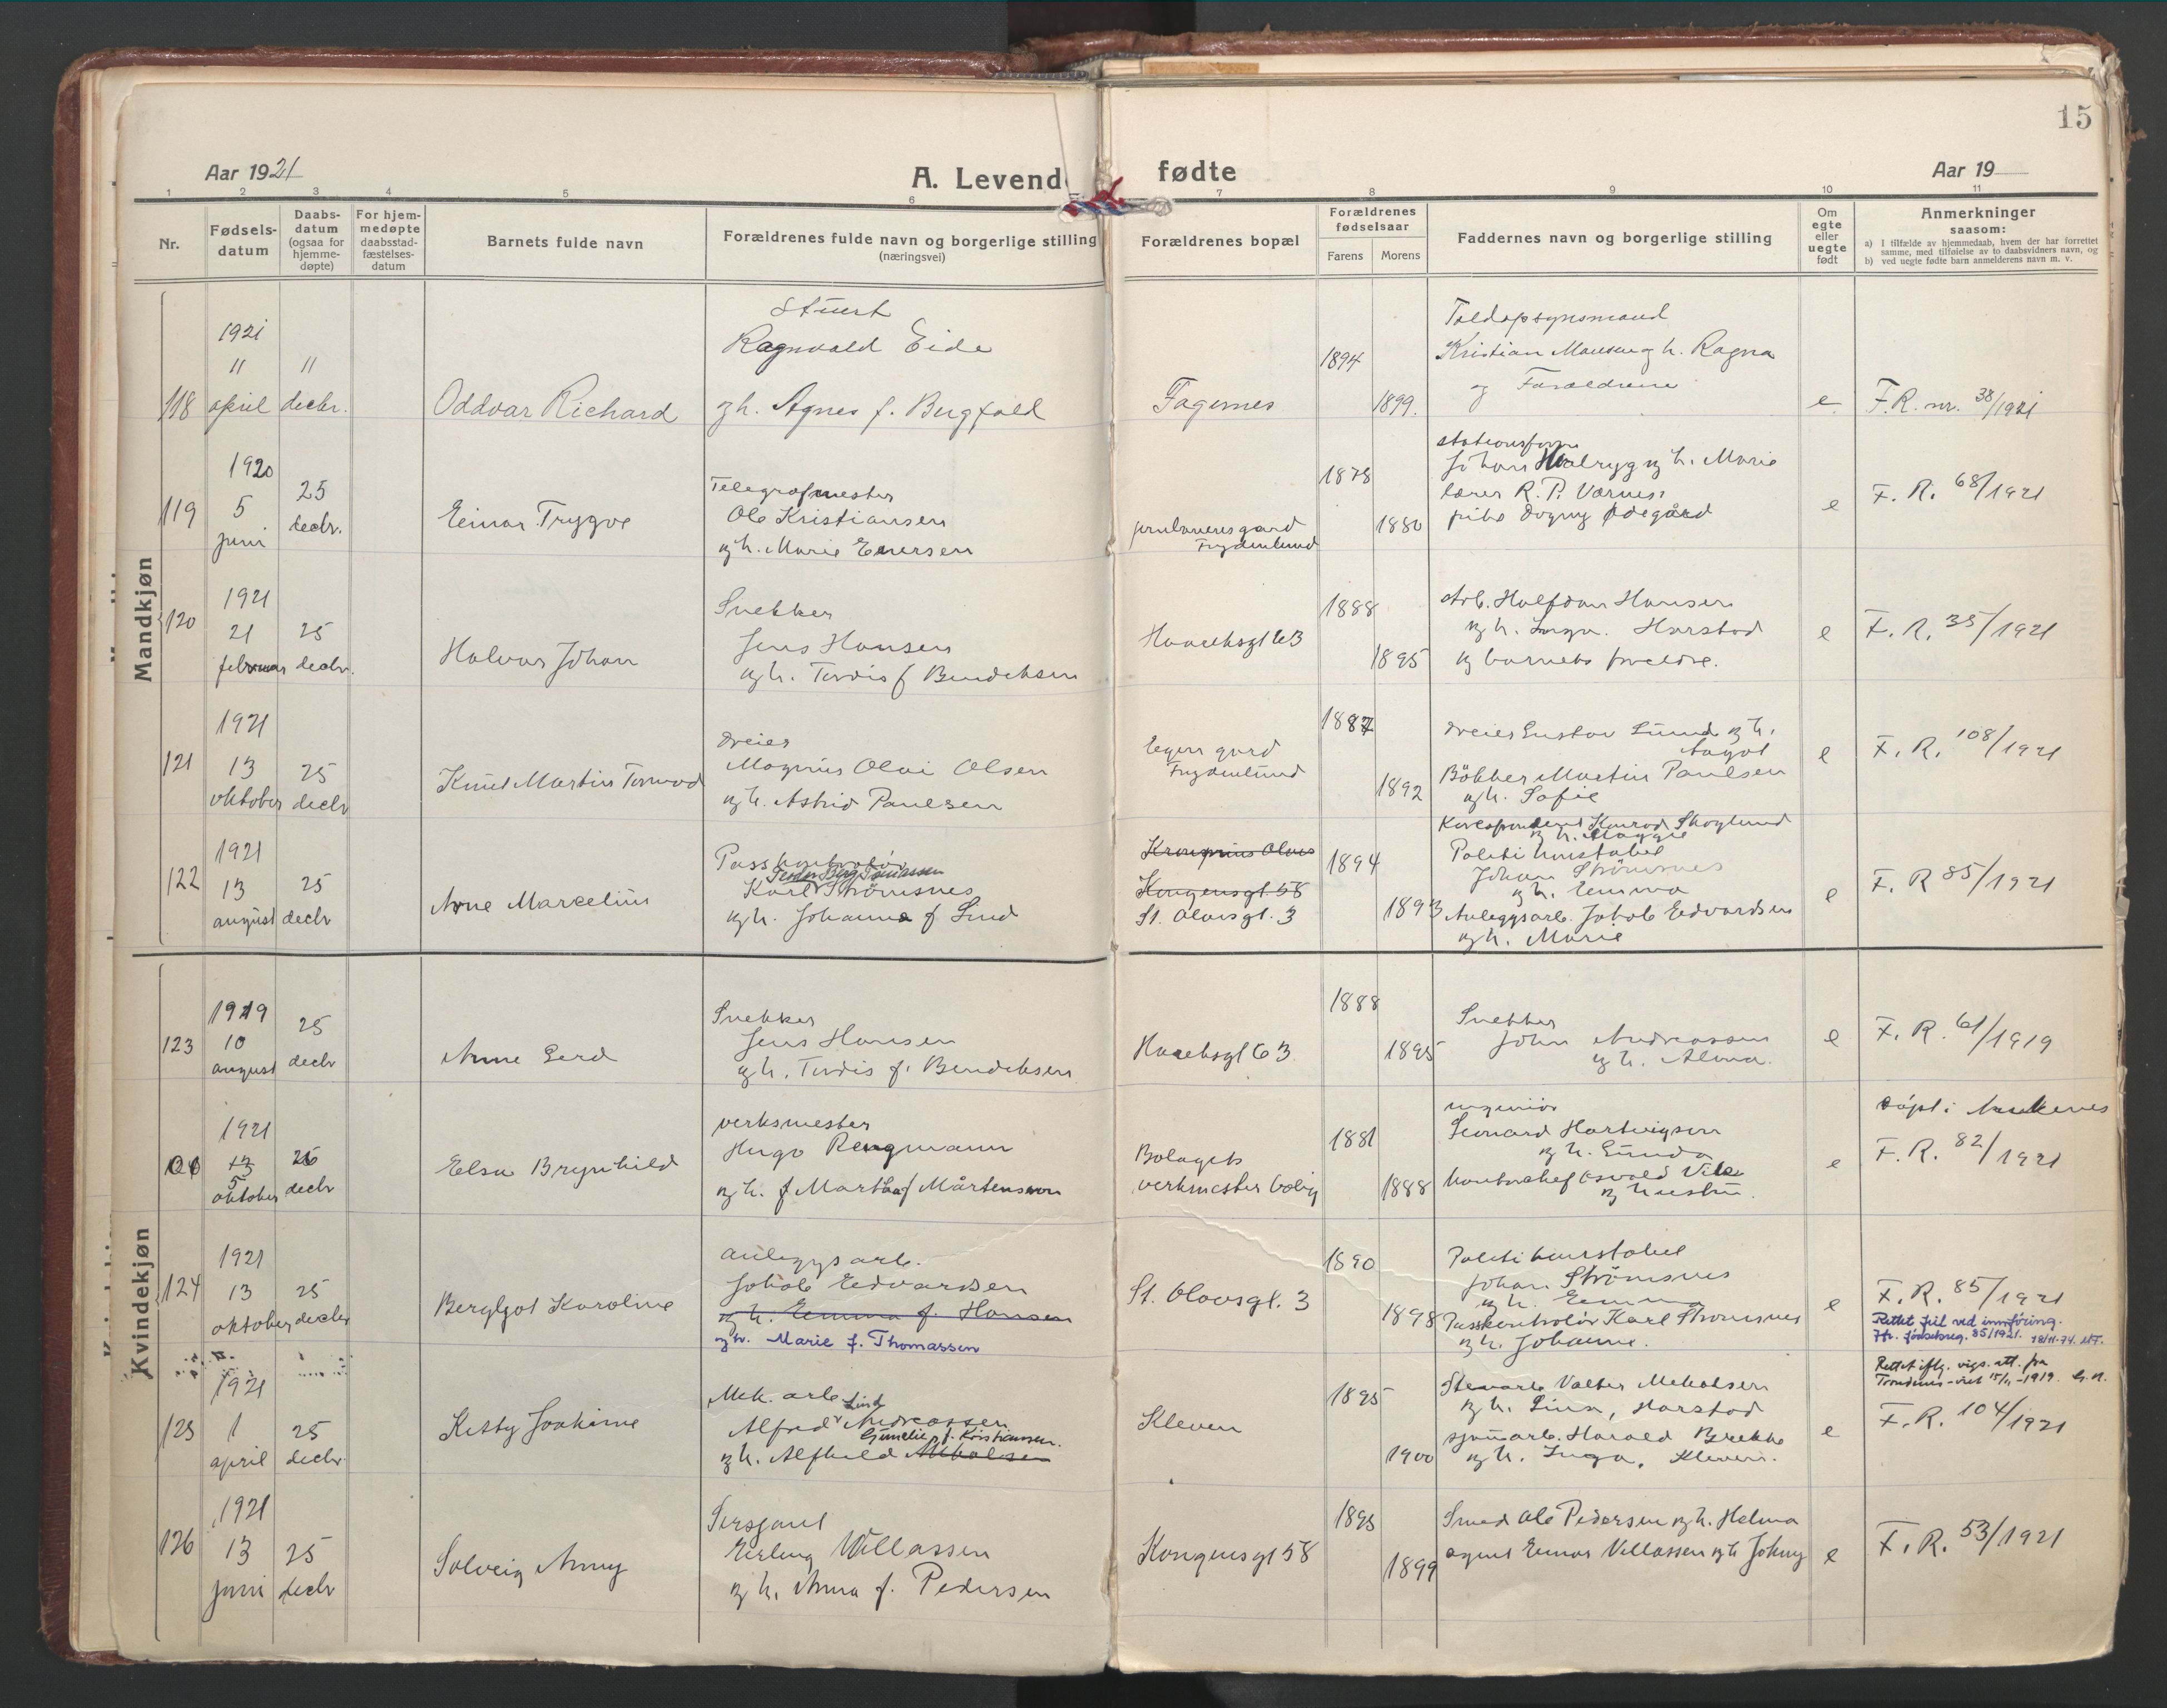 15
Aar 1921
A. Levende
fødte
Aar 19
1 2 3 4 5 6 7 8 9 10 11
Nr.
Fødsels-
datum
Daabs-
datum
(ogsaa for
hjemme-
døpte)
For hjem-
medøpte
daabsstad-
fæstelses-
datum
Barnets fulde navn
Forældrenes fulde navn og borgerlige stilling
(næringsvei)
Forældrenes bopæl
Forældrenes
fødselsaar
Farens
Morens
Faddernes navn og borgerlige stilling
Om
egte
eller
uegte
født
Anmerkninger
saasom:
a) I tilfælde av hjemmedaab, hvem der har forrettet
samme, med tilføielse av to daabsvidners navn, og
b) ved uegte fødte barn anmelderens navn m. v.
Mandkjøn
118
1921
11
april
11
decbr.
Oddvar Richard
Stuert
Ragnvald Eide
og h. Agnes f. Bergfald
Fagernes
1894
1899.
Toldopsynsmand
Kristian Monsen og h. Ragna
og Forældrene
e
F.R. nr. 38/1921
119
1920
5
juni
25
decbr.
Einar Trygve
Telegrafmester
Ole Kristiansen
og h. Marie Enersen
Frydenlund
1878
1880
Johan og h. Marie
lærer R. P. Varnes
Dagny Ødegård
e
F. R. 68/1921
120
1921
21
februar
25
decbr.
Halvar Johan
Snekker
Jens Hansen
og h. Tordis f Bendiksen
Haacksgt 63
1888
1895
Arb. Halfdan Hansen
og h. Inga. Harstad
og barnets foreldre.
e
F. R. 35/1921
121
1921
13
oktober
25
decbr
Knut Martin Tormod
Dreier
Magnus Olai Olsen
og h. Astrid Paulsen
Egen gard
Frydenlund
1887
1892
Dreier Gustav Lund og h.
Aagot
Bökker Martin Paulsen
og h. Sofie
e
F. R. 108/1921
122
1921
13
august
25
decbr
Arne Marcelius
Passkontrolör
Karl Strömsnes
og h. Johanna f. Lind
Kronprins Olavs
Kongensgt. 58
St. Olavsgt. 3
1894
1893
Korrespondent Konrad Skoglund
og h. Maggie
Politikonstabel
Johan Strömsnes
og h. Emma
Anleggsarb. Jakob Edvardsen
og h. Marie
e
F. R 85/1921
Kvindekjøn
123
1919
10
august
25
decbr
Anne Gerd
Snekker
Jens Hansen
og h. Tordis f. Bendiksen
Haacksgt 63
1888
1895
Snekker
John Andreassen
og h. Alma.
e
F. R. 61/1919
1921
13
5
oktober
26
decbr
Elsa Brynhild
verksmester
Hugo Rengmann
og h. f Martha f Mårtensson
Bolagets
verkmester bolig
1881
1888
ingeniör
Leonard Hartvigsen
og h. Gunda
kontorchef Osvald Vik
og hustru.
e
döpt i Ankenes
F. R. 82/1921
124
1921
13
oktober
25
decbr
Bergljot Karoline
anleggsarb.
Jakob Edvardsen
og h. Emma f. Hansen
og h. Marie f. Thomassen
St. Olavsgt. 3
1890
1898
Politikonstabel
Johan Strömsnes
og h. Emma
Passkontrolör Karl Strömsnes
og h. Johanne.
e
F. R. 85/1921
Rettet feil ved innföring.
Jfr. födselsreg. 85/1921. 18/11-74.
125
1921
1
april
25
decbr
Ketty Joakime
Mek. arb.
Lind
Alfred Andreassen
Gunelie f. Kristiansen.
og h. Alfhild
Kleven
1895
1900
Stenarb. Valter Mikalsen
og h. Lina, Harstad
sjauarb. Harald Brekke
og h. Inga, Kleven.
e
Rettet iflg. vigs. att. fra
Trondenes 15/11-1919.
F. R. 104/1921
126
1921
13
juni
25
decbr
Solveig Anny
Sersjant
Erling Villassen
og h. Anna f. Pedersen
Kongensgt 58
1895
1899
Smed Ole Pedersen og h. Helma
agent Einar Villassen og h Johny
e
F. R. 53/1921